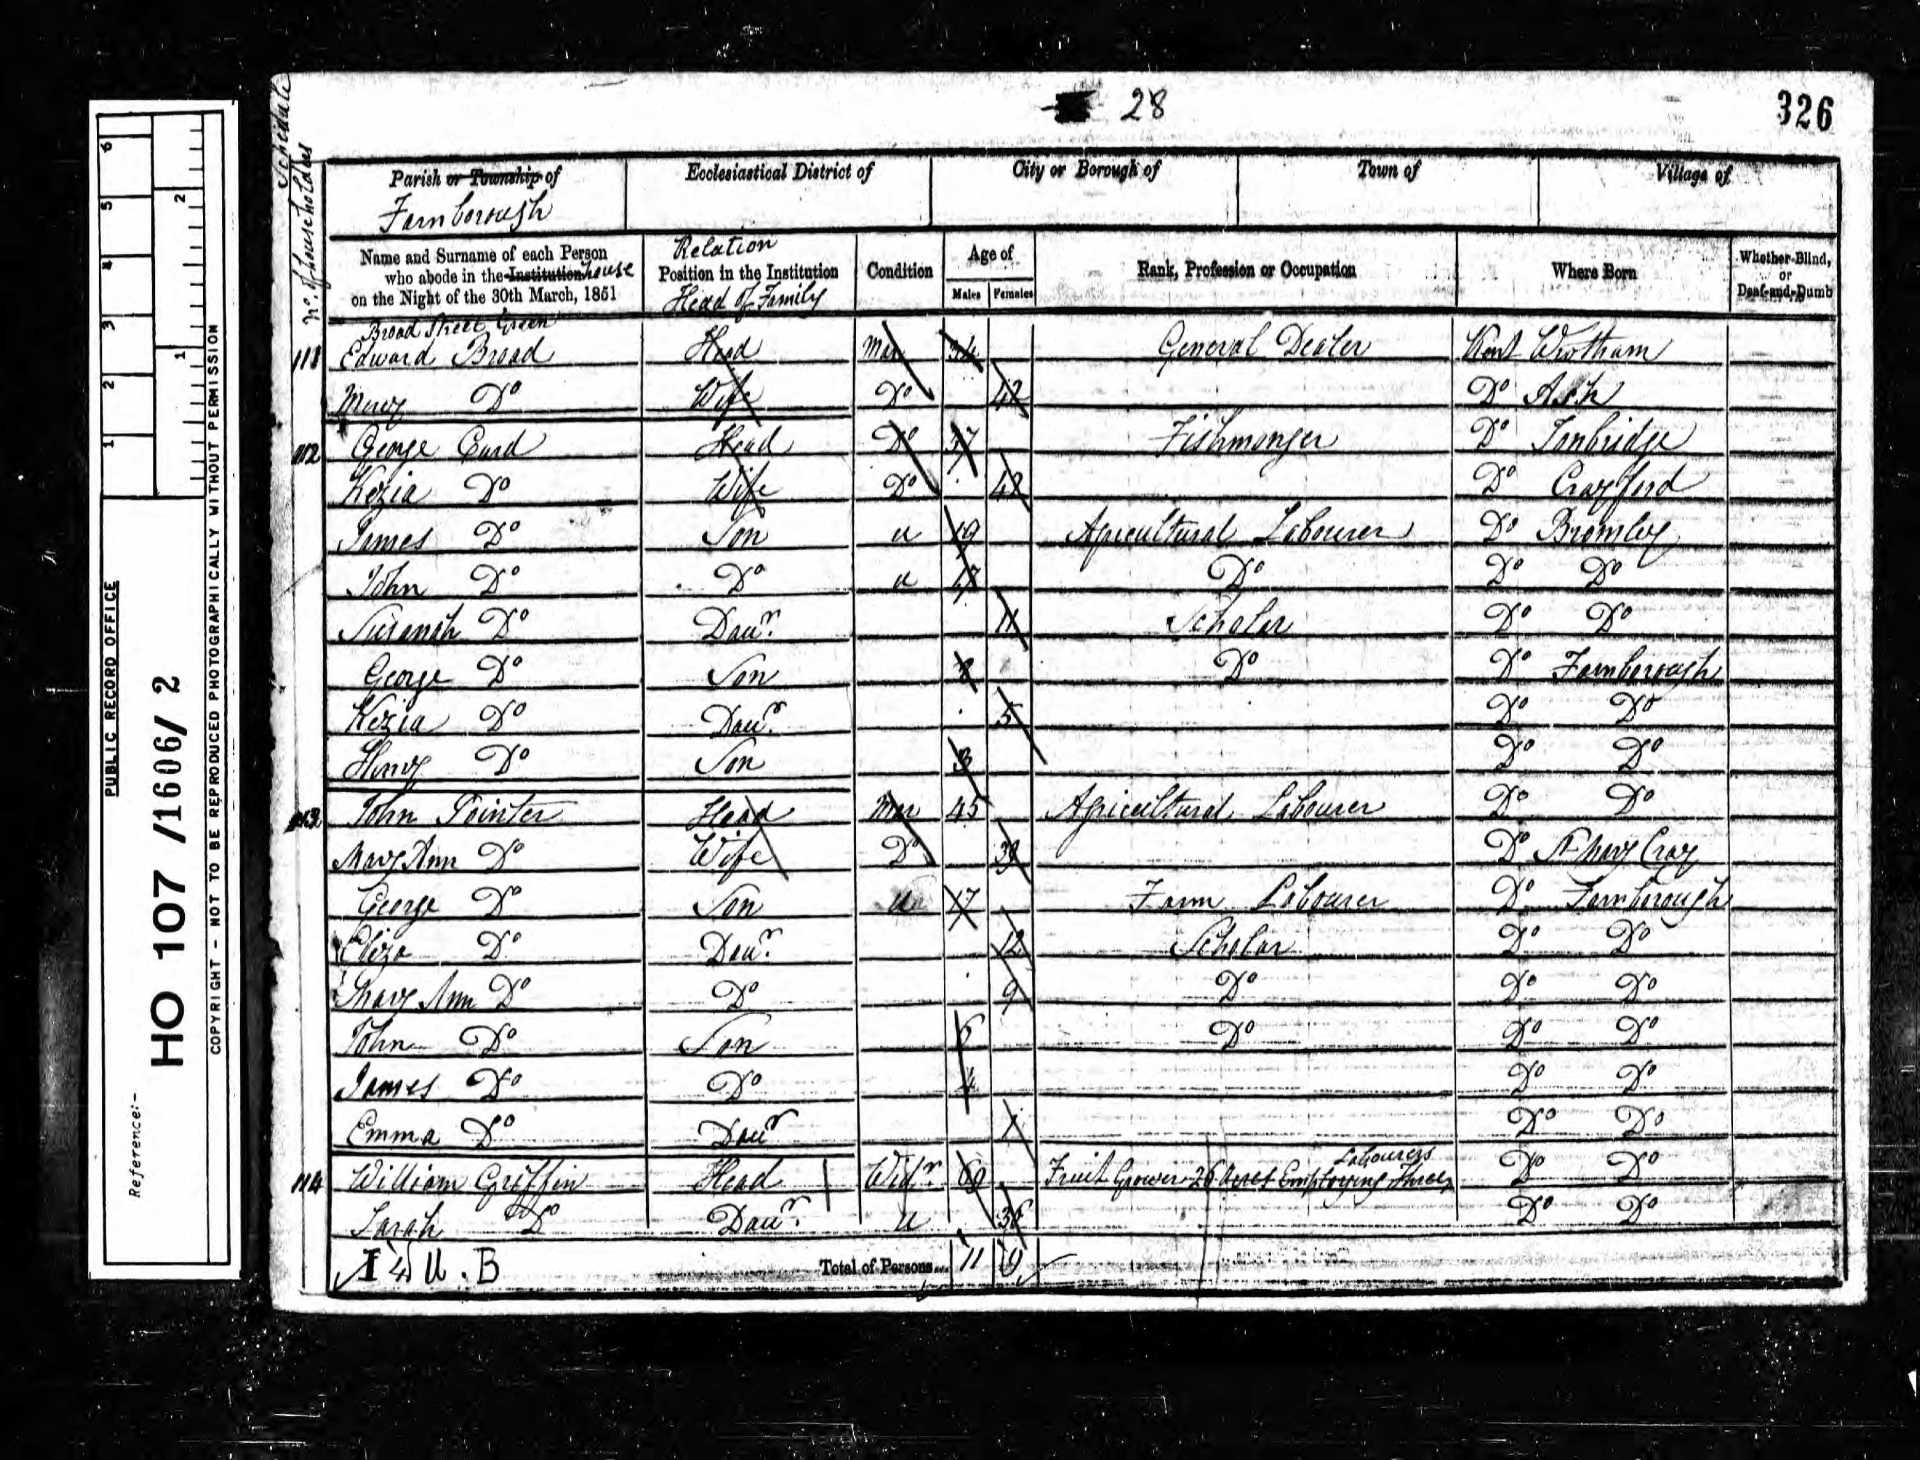 28
326
Schedule
No. of householders
Parish or Township of
Farnborough
Ecclesiastical District of
City or Borough of
Town of
Village of
Name and Surname of each Person who abode in the Institution house on the Night of the 30th March, 1851
Relation
Position in the Institution
Head of Family
Condition
Age of
Males Females
Rank, Profession or Occupation
Where Born
Whether Blind, or Deaf-and-Dumb
Broad Street Green
111 Edward Broad Head Mar 34 General Dealer Kent Wrotham
Mary Do Wife Do 42 Do Ash
112 George Card Head Do 37 Fishmonger Do Tonbridge
Kezia Do Wife Do 42 Do Crayford
James Do Son u 19 Agricultural Labourer Do Bromley
John Do Do u 17 Do Do Do
Susanah Do Daur. 11 Scholar Do Do
George Do Son 8 Do Do Farnborough
Kezia Do Daur. 5 Do Do
Henry Do Son 3 Do Do
113 John Pointer Head Mar 45 Agricultural Labourer Do Do
Mary Ann Do Wife Do 39 Do St Mary Cray
George Do Son u 17 Farm Labourer Do Farnborough
Eliza Do Daur. 12 Scholar Do Do
Mary Ann Do Do 9 Do Do Do
John Do Son 6 Do Do Do
James Do Do 4 Do Do
Emma Do Daur 1 Do Do
114 William Griffin Head Widr. 69 Fruit Grower 26 Acres Employing Three Labourers Do Do
Sarah Do Daur. u 36 Do Do
I 4 U. B
Total of Persons... 11 9
PUBLIC RECORD OFFICE
1 2 3 4 5 6
1 2
Reference:-
HO 107 /1606/ 2
COPYRIGHT - NOT TO BE REPRODUCED PHOTOGRAPHICALLY WITHOUT PERMISSION